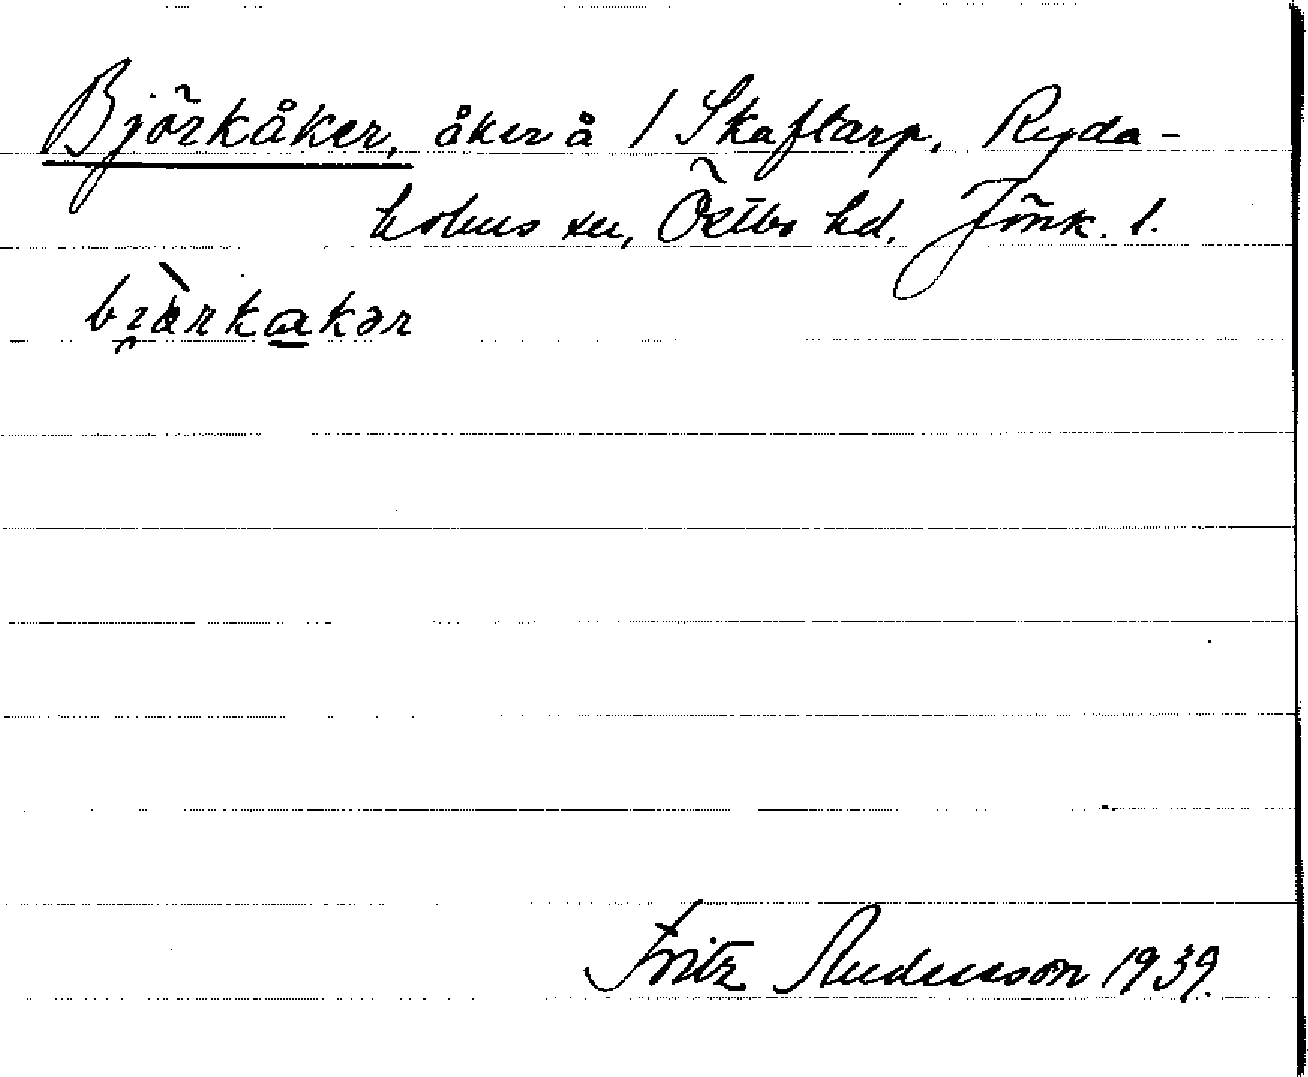 Björkåker, åker å 1 Skaftarp, Ryda-
holms sn, Östbo hd, Jönk. l.
bi̯àrkakər
Fritz Andersson 1939.